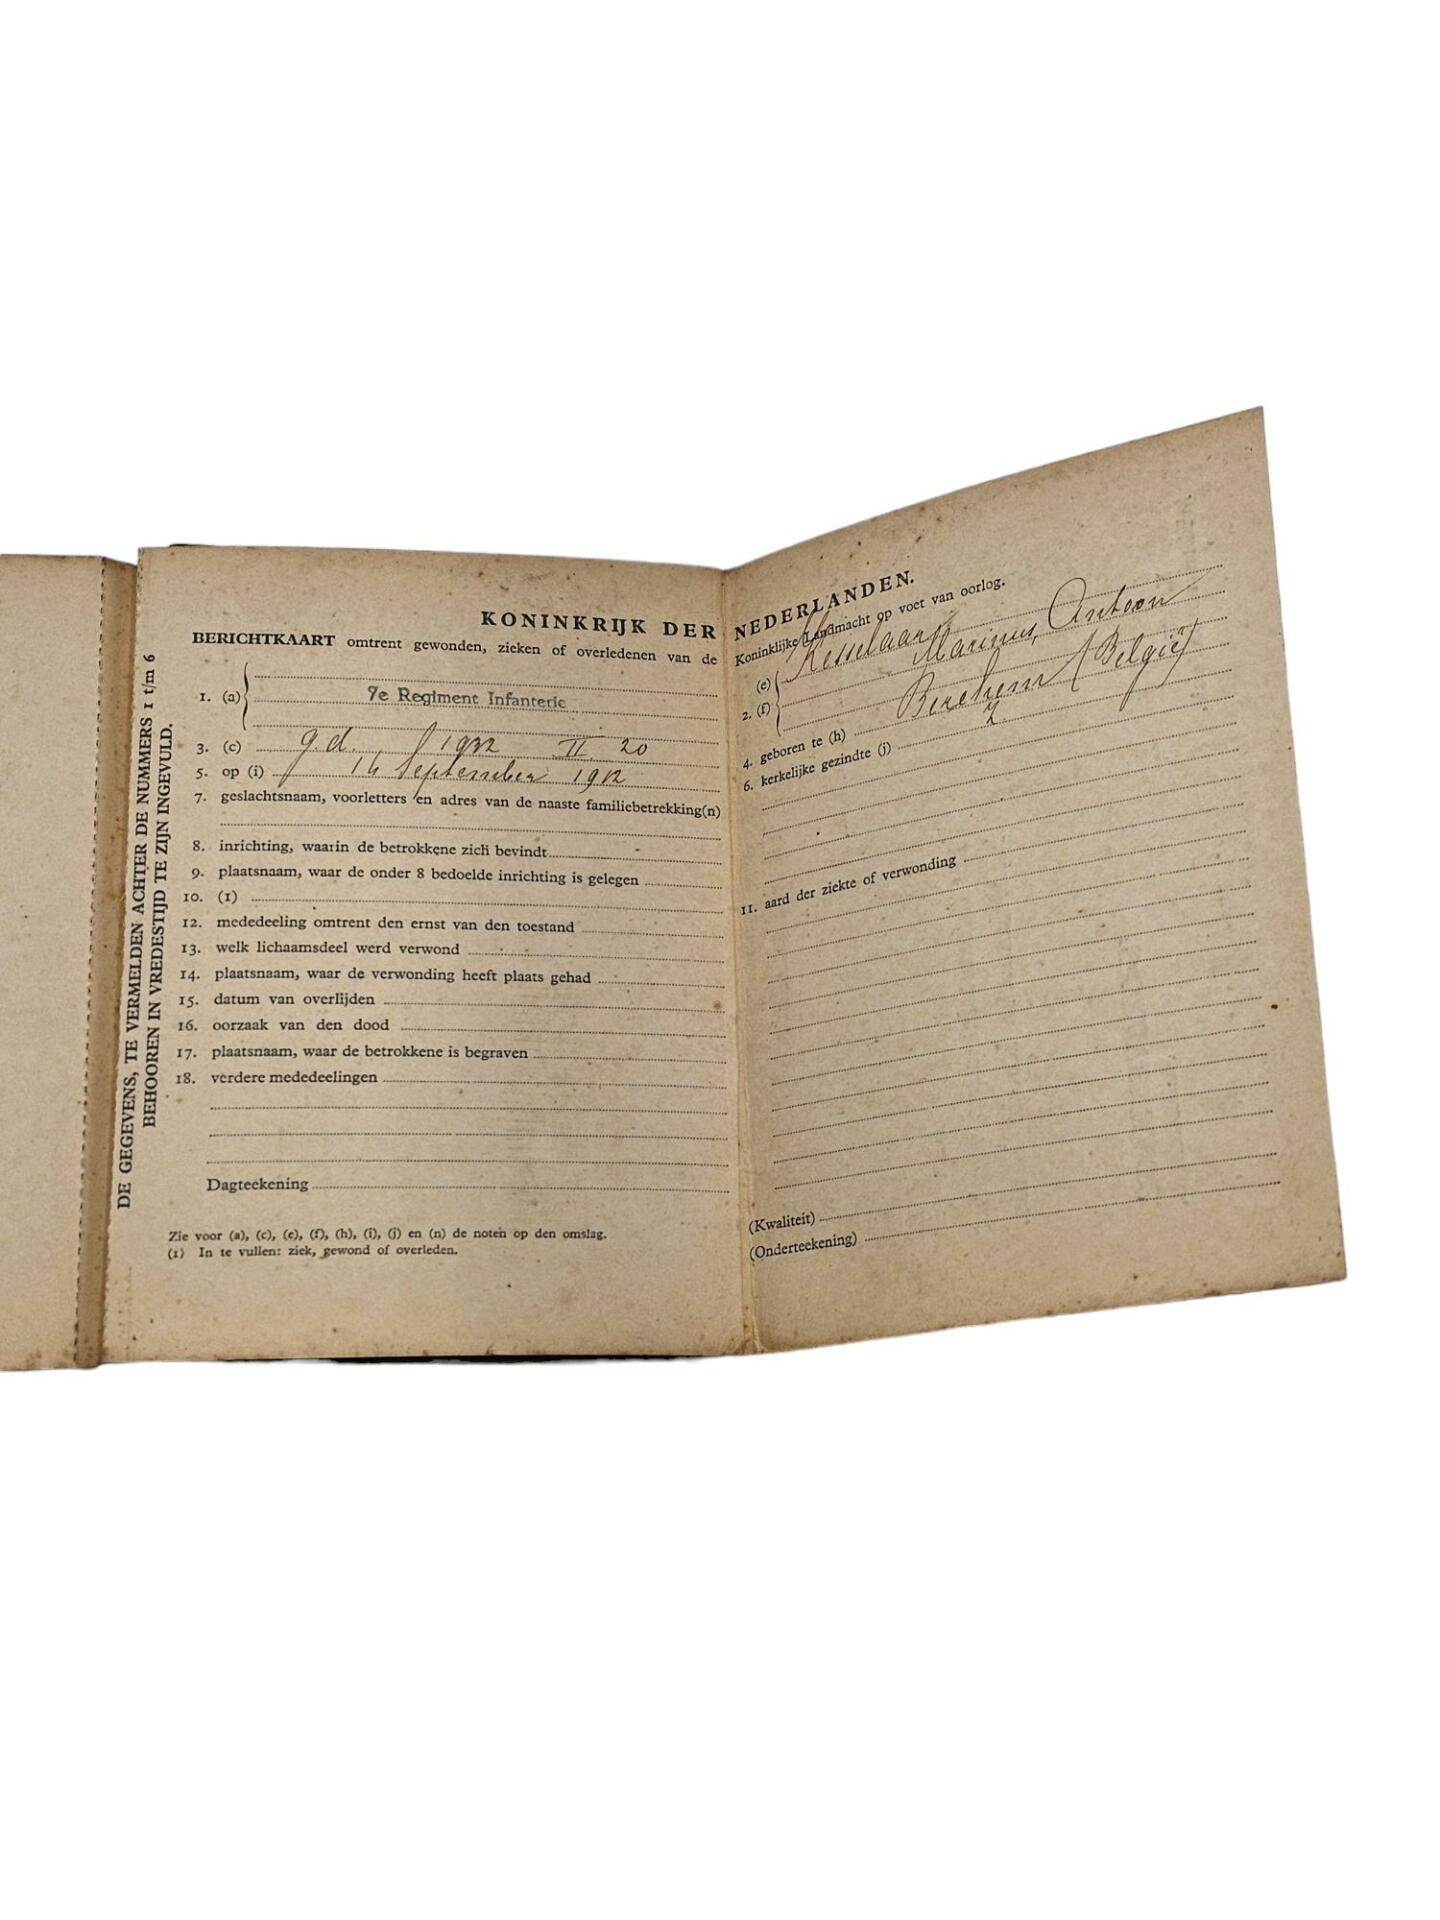 DE GEGEVENS, TE VERMELDEN ACHTER DE NUMMERS 1 t/m 6
BEHOOREN IN VREDESTIJD TE ZIJN INGEVULD.
KONINKRIJK DER
BERICHTKAART omtrent gewonden, zieken of overledenen van de
1. (a) 7e Regiment Infanterie
3. (c) g.d. 1932 II 20
5. op (i) 16 September 1912
7. geslachtsnaam, voorletters en adres van de naaste familiebetrekking(n)
8. inrichting, waarin de betrokkene zich bevindt
9. plaatsnaam, waar de onder 8 bedoelde inrichting is gelegen
10. (1)
12. mededeeling omtrent den ernst van den toestand
13. welk lichaamsdeel werd verwond
14. plaatsnaam, waar de verwonding heeft plaats gehad
15. datum van overlijden
16. oorzaak van den dood
17. plaatsnaam, waar de betrokkene is begraven
18. verdere mededeelingen
Dagteekening
Zie voor (a), (c), (e), (f), (h), (i), (j) en (n) de noten op den omslag.
(1) In te vullen: ziek, gewond of overleden.
NEDERLANDEN.
Koninklijke Landmacht op voet van oorlog.
(e) Kesselaar
2. (f) Marinus, Antoon
4. geboren te (h) Berchem (België)
6. kerkelijke gezindte (j)
11. aard der ziekte of verwonding
(Kwaliteit)
(Onderteekening)